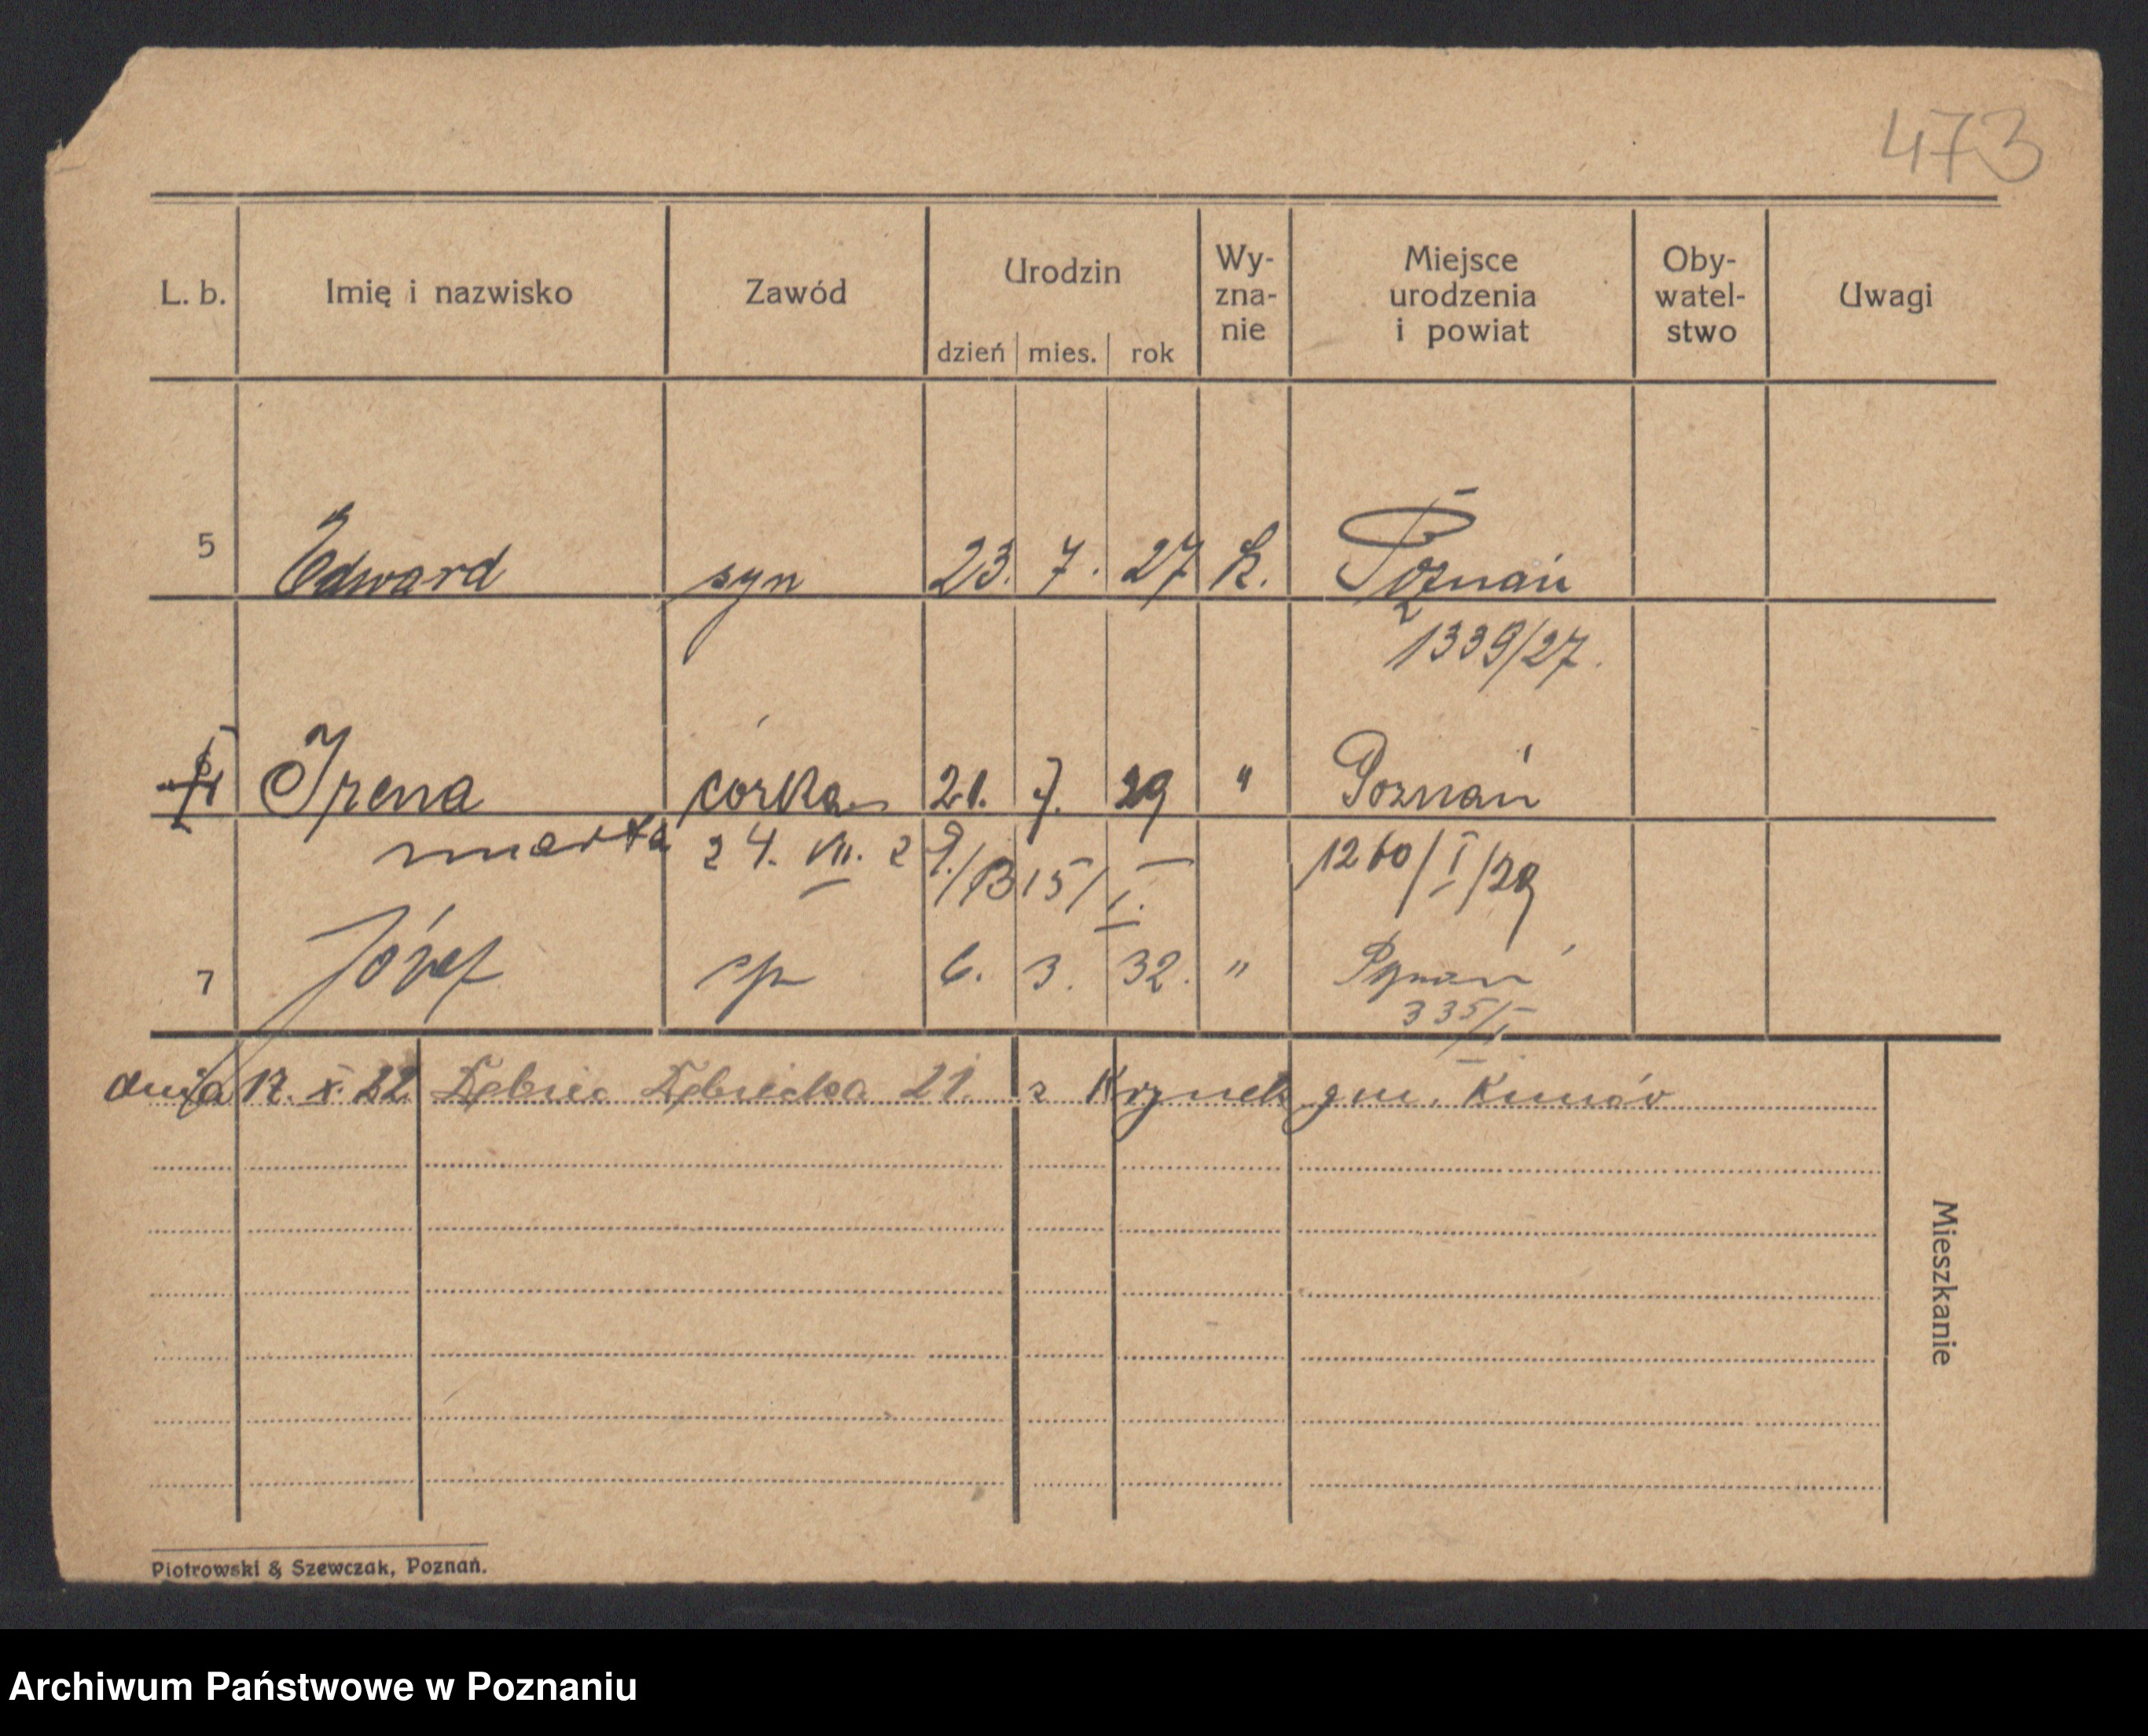 473
L. b. Imię i nazwisko Zawód Urodzin dzień mies. rok Wy-zna-nie Miejsce urodzenia i powiat Oby-watel-stwo Uwagi
5 Edward syn 23. 7. 27 k. Poznań
1339/27.
Irena córka 21. 7. 29 " Poznań
zmarła 24. VII. 29./1315/I. 1260/I/29
7 Józef 6. 3. 32. " Poznań
335/I
dnia 17. X. 22 Dębiec Dębiecka 21. z gm.
Mieszkanie
Piotrowski & Szewczak, Poznań.
Archiwum Państwowe w Poznaniu